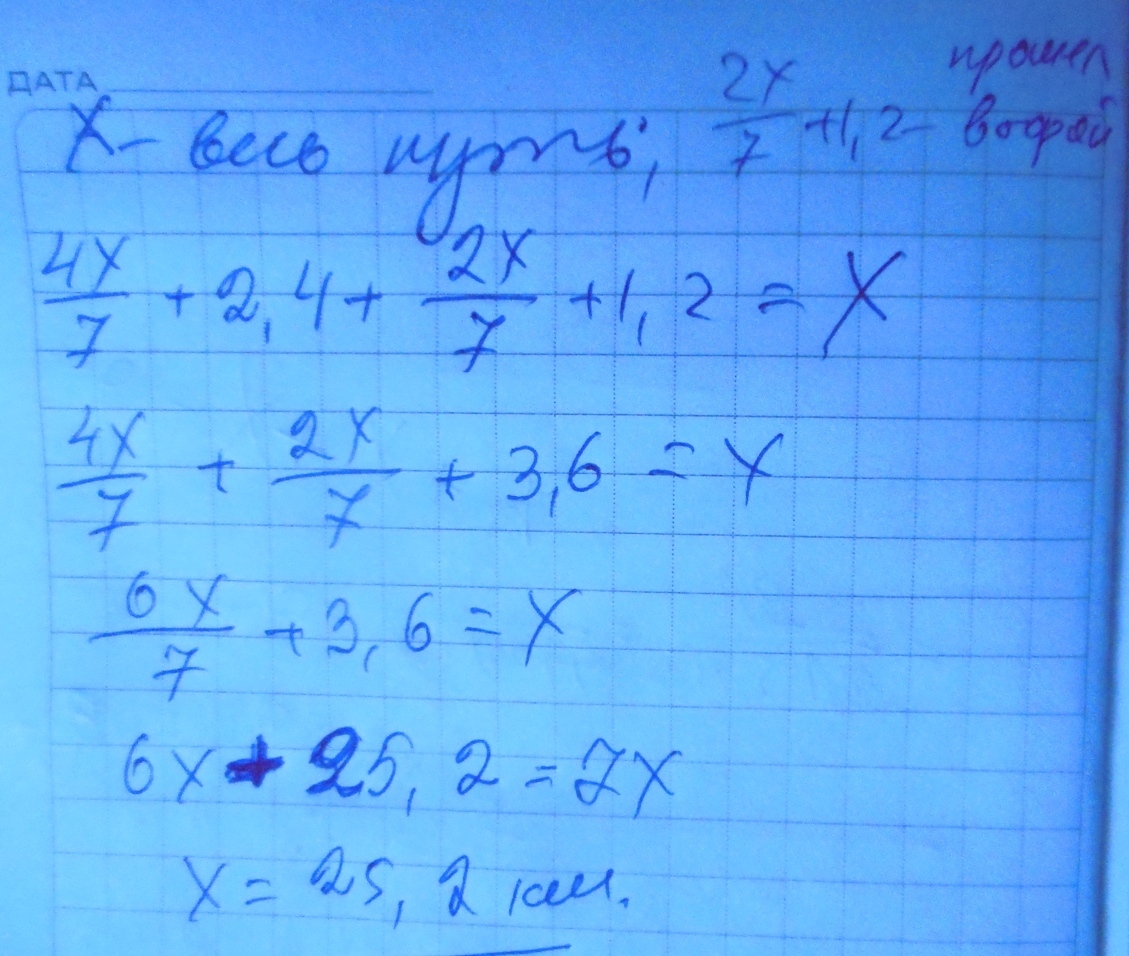 ДАТА
X - весь путь; 2x/7 + 1,2 - прошел второй
4x/7 + 2,4 + 2x/7 + 1,2 = X
4x/7 + 2x/7 + 3,6 = X
6x/7 + 3,6 = X
6x + 25,2 = 7x
X = 25,2 км.